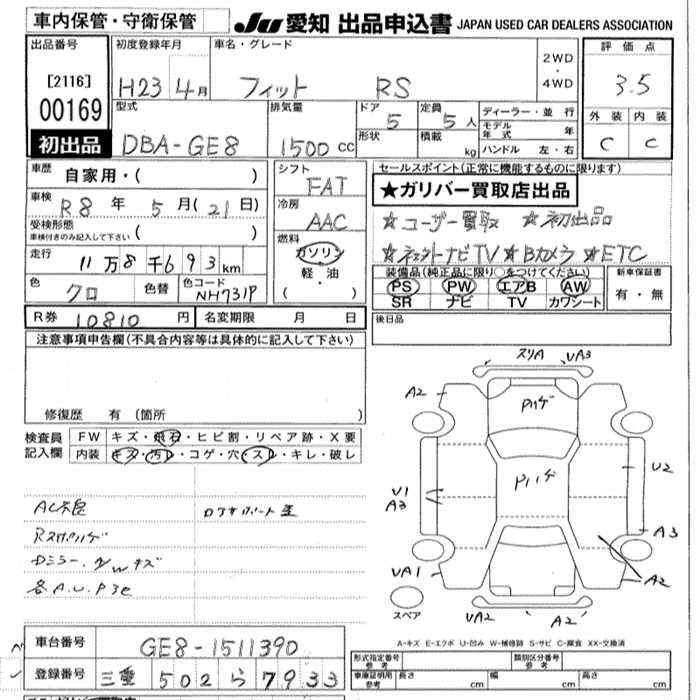 車内保管・守衛保管
JU 愛知 出品申込書 JAPAN USED CAR DEALERS ASSOCIATION
出品番号 初度登録年月 車名・グレード 評価点
[2116] H23 4月 フィット RS 2WD・4WD 3.5
00169 型式 排気量 ドア 5 定員 5人 ディーラー・並行 外装 内装
モデル年式 年
初出品 DBA-GE8 1500CC 形状 積載 kg ハンドル 左・右 C C
車歴 自家用・( ) シフト FAT セールスポイント(正常に機能するものに限ります)
★ガリバー買取店出品
車検 R8年 5月(21日) 冷房 AAC ☆ユーザー買取 ☆初出品
受検形態
車検付きのみ記入して下さい ( ) 燃料 ☆ネットナビTV ☆Bカメラ ☆ETC
走行 11万8千693km ガソリン・軽・油 ( ) 装備品(純正品に限り○をつけてください) 新車保証書
色 クロ 色替 色コード NH731P PS PW エアB AW 有・無
SR ナビ TV カワシート
R券 10810円 名変期限 月 日 後日品
注意事項申告欄(不具合内容等は具体的に記入して下さい)
修復歴 有 (箇所 )
検査員 記入欄 FW キズ・飛石・ヒビ割・リペア跡・X要
内装 キズ・汚レ・コゲ・穴・スレ・キレ・破レ
AC不良
Rスポハゲ
Dミラー
各A.U.P3e
スリA UA3
A2
Pハゲ
Pハゲ
U2
U1
A3
A3
UA1
A2
スペア
UA2 A2
A-キズ E-エクボ U-凹み W-補修跡 S-サビ C-腐食 XX-交換済
車台番号 GE8-1511390
登録番号 三重 502 ら 7933
形式指定番号 参考 類別区分番号 参考
車庫証明用 参考 長さ cm 幅 cm 高さ cm